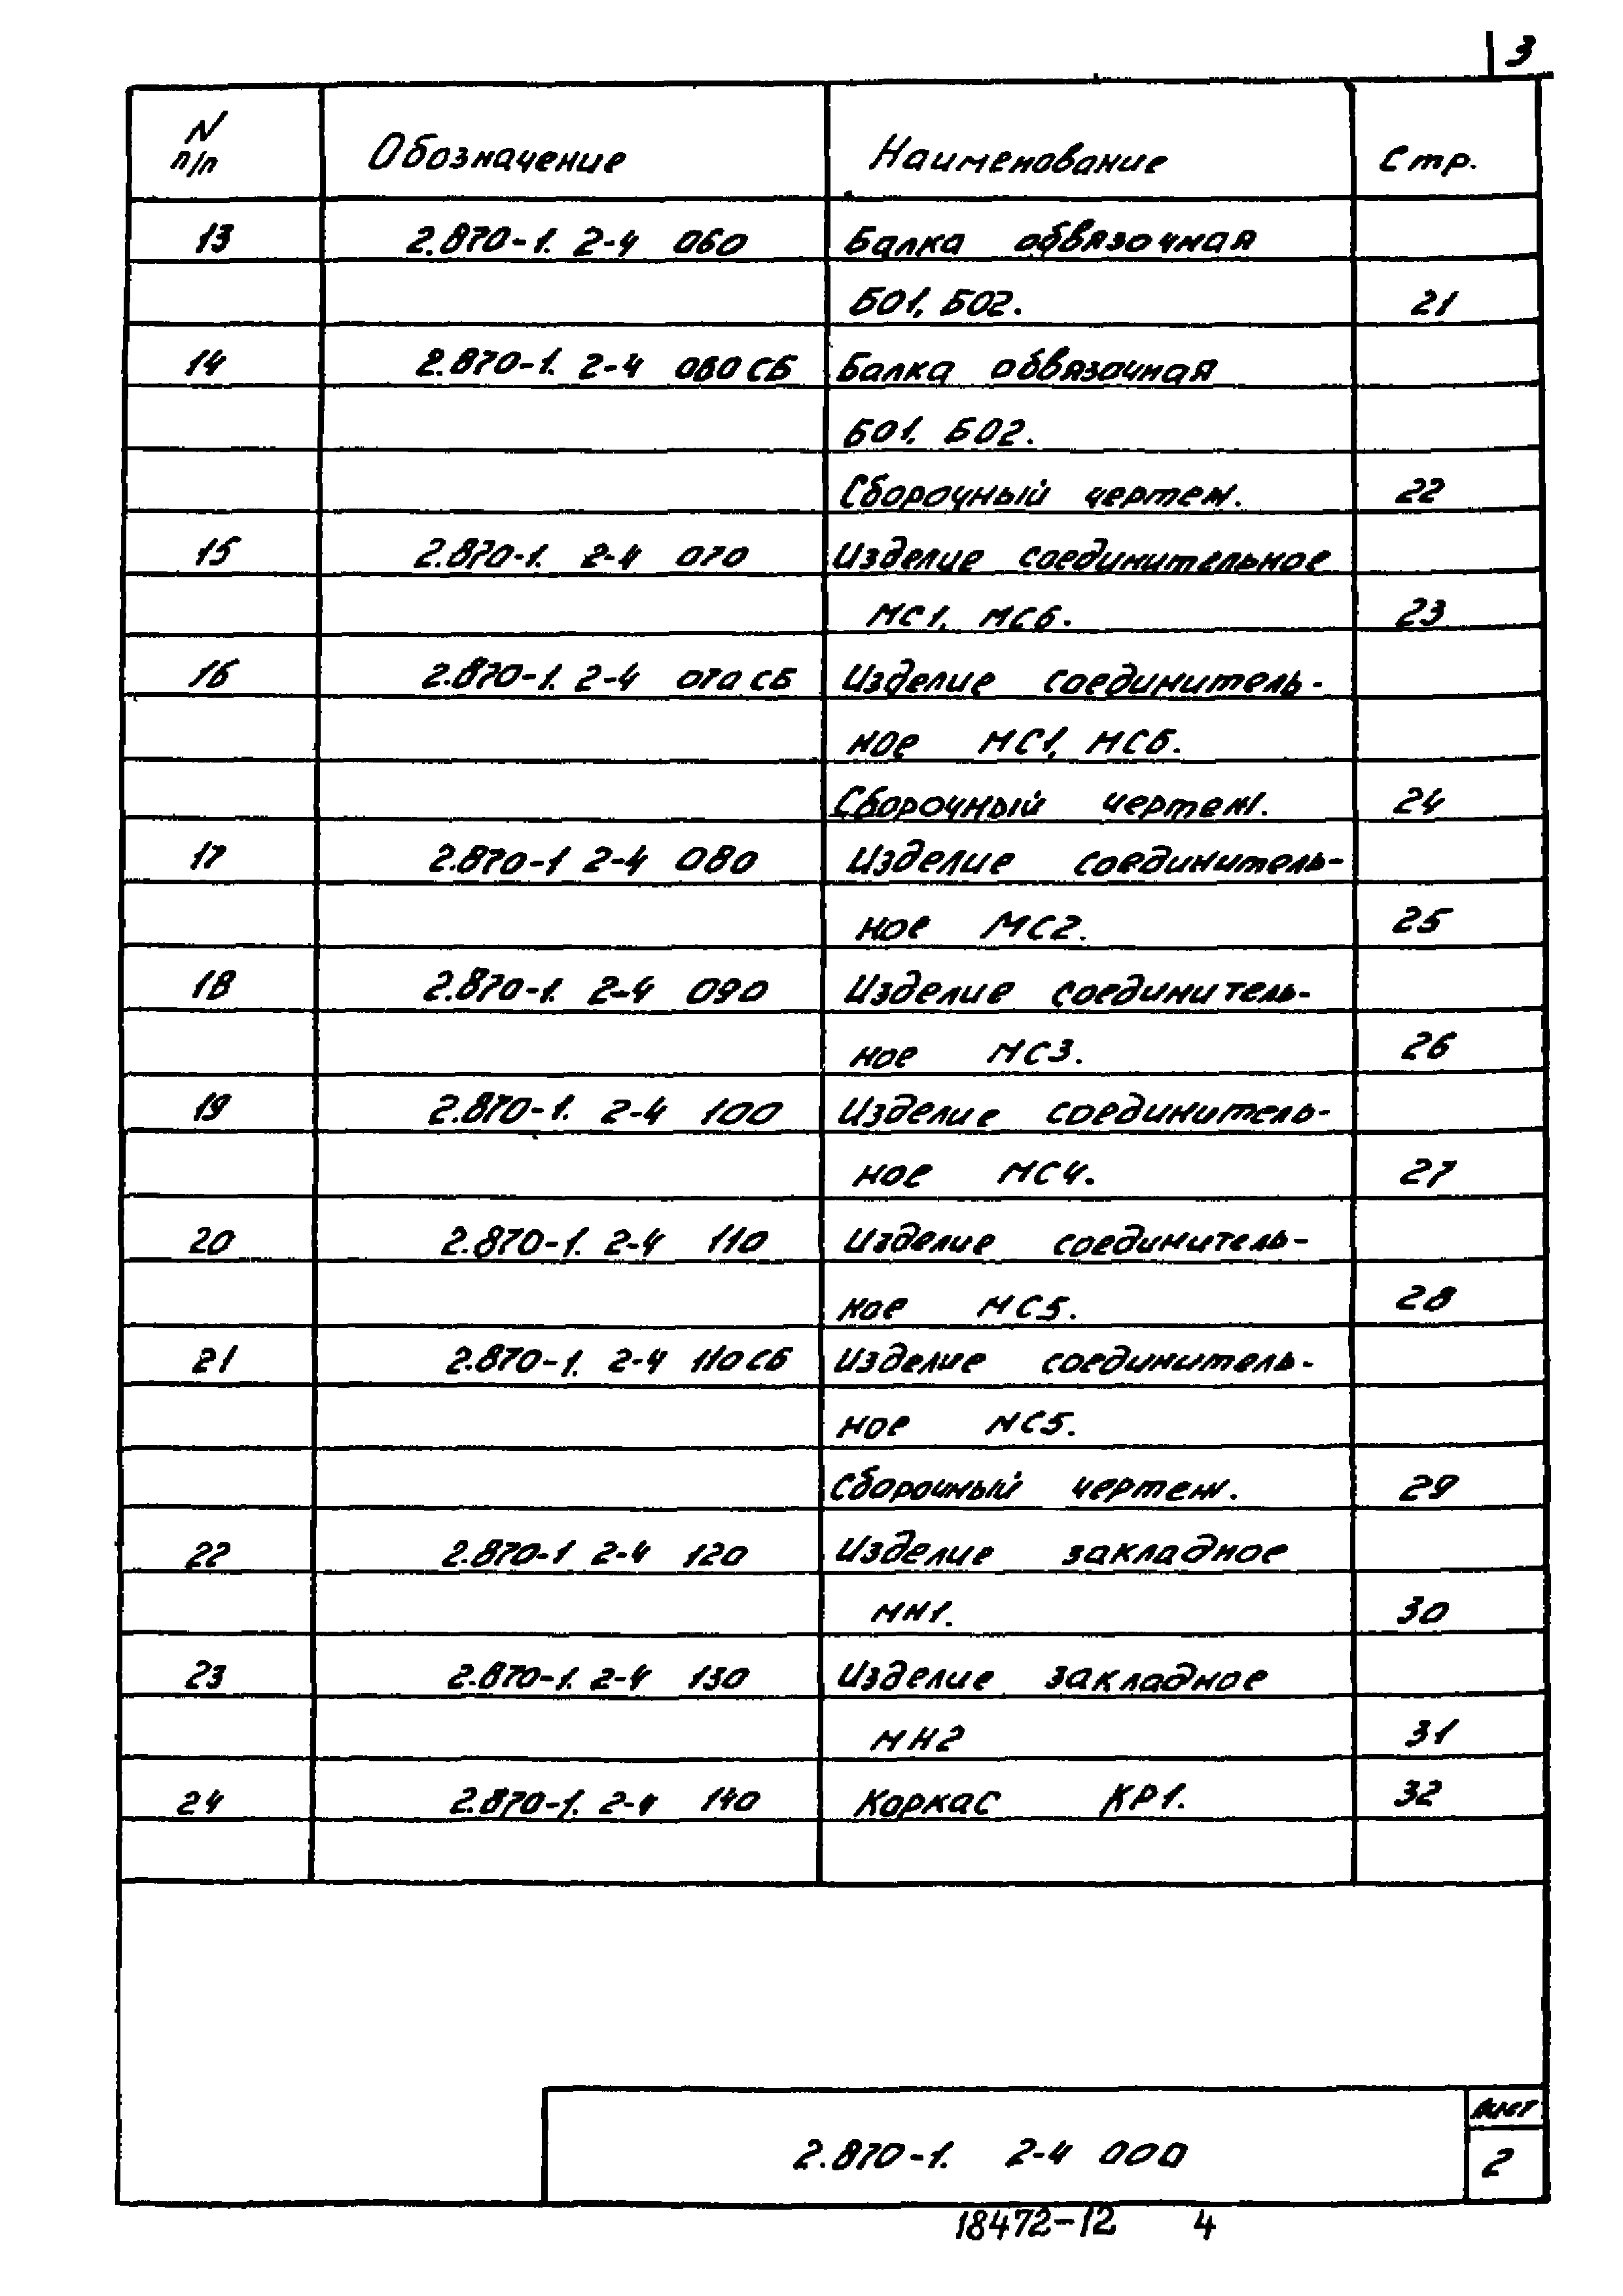 3
N
п/п Обозначение Наименование Стр.
13 2.870-1. 2-4 060 Балка обвязочная
БО1, БО2. 21
14 2.870-1. 2-4 060 СБ Балка обвязочная
БО1, БО2.
Сборочный чертеж. 22
15 2.870-1. 2-4 070 Изделие соединительное
МС1, МС6. 23
16 2.870-1. 2-4 070 СБ Изделие соединитель-
ное МС1, МС6.
Сборочный чертеж. 24
17 2.870-1 2-4 080 Изделие соединитель-
ное МС2. 25
18 2.870-1. 2-4 090 Изделие соединитель-
ное МС3. 26
19 2.870-1. 2-4 100 Изделие соединитель-
ное МС4. 27
20 2.870-1. 2-4 110 Изделие соединитель-
ное МС5. 28
21 2.870-1. 2-4 110 СБ Изделие соединитель-
ное МС5.
Сборочный чертеж. 29
22 2.870-1 2-4 120 Изделие закладное
МН1. 30
23 2.870-1. 2-4 130 Изделие закладное
МН2 31
24 2.870-1. 2-4 140 Каркас КР1. 32
Лист
2.870-1. 2-4 000 2
18472-12 4